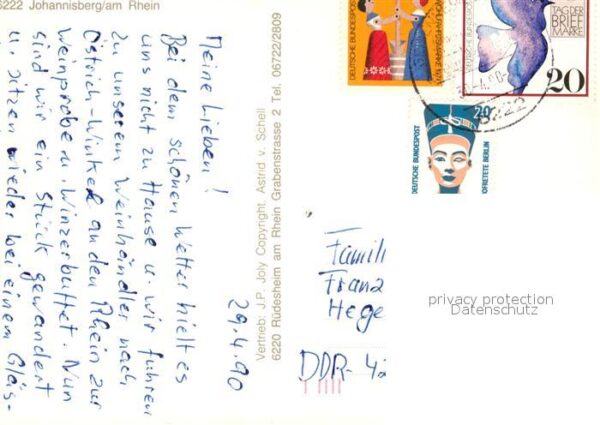 6222 Johannisberg/am Rhein
29.4.90
Meine Lieben!
Bei dem schönen Wetter hielt es
uns nicht zu Hause u. wir fuhren
zu unserem Weinhändler nach
Östrich-Winkel an den Rhein zur
Weinprobe u. Winzerbuffet. Nun
sind wir ein Stück gewandert
u. sitzen wieder bei einem Gläs-
Vertrieb: J.P. Joly Copyright, Astrid v. Schell
6220 Rüdesheim am Rhein Grabenstrasse 2 Tel. 06722/2809
DEUTSCHE BUNDESPOST
WOHLFAHRTSMARKE 1971
TAG DER
BRIEF
MARKE
20
20
DEUTSCHE BUNDESPOST
NOFRETETE BERLIN
Famili
Franz
Hege
DDR-42
privacy protection
Datenschutz